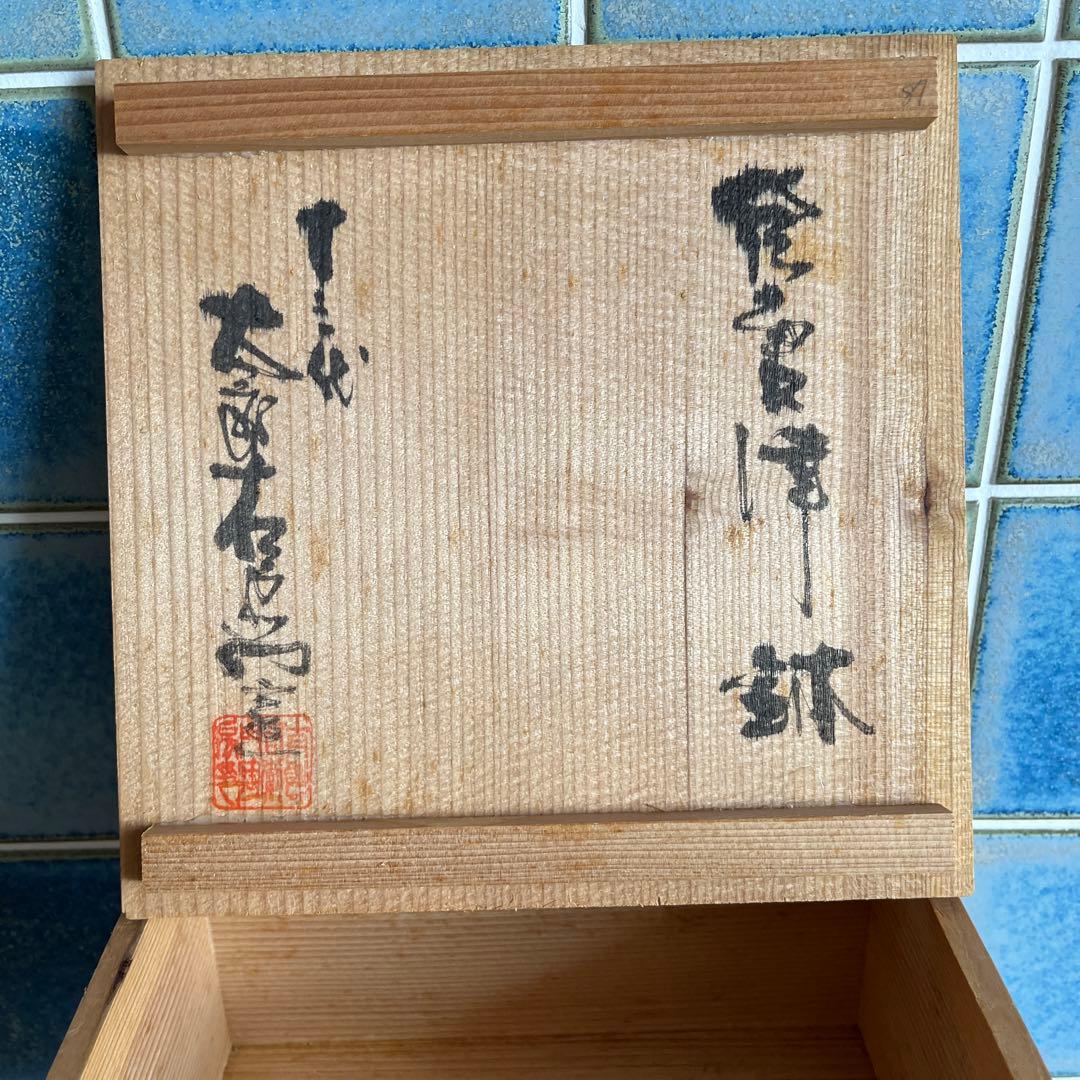 絵唐津 鉢
十二代
太郎右衛門造